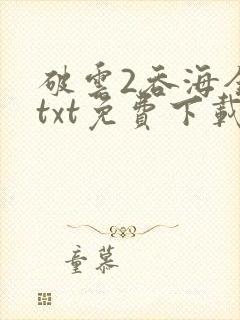 破雲2吞海全
txt免費下載
童慕